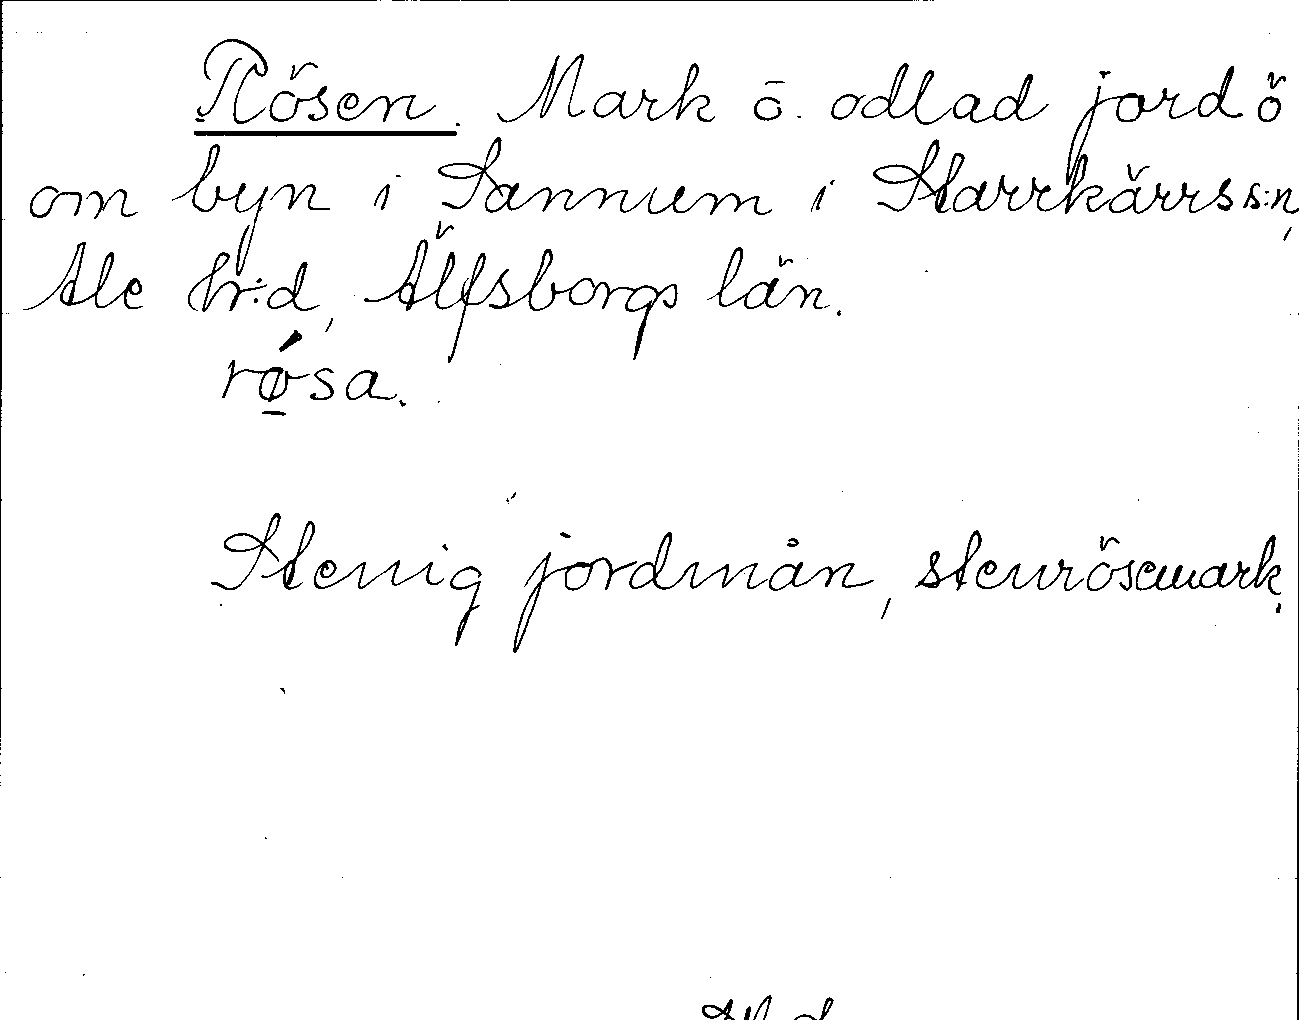 Rösen. Mark o. odlad jord ö
om byn i Sannum i Starrkärrs s:n,
Ale hr:d, Älfsborgs län.
rǿsa.
Stenig jordmån, stenrösemark.